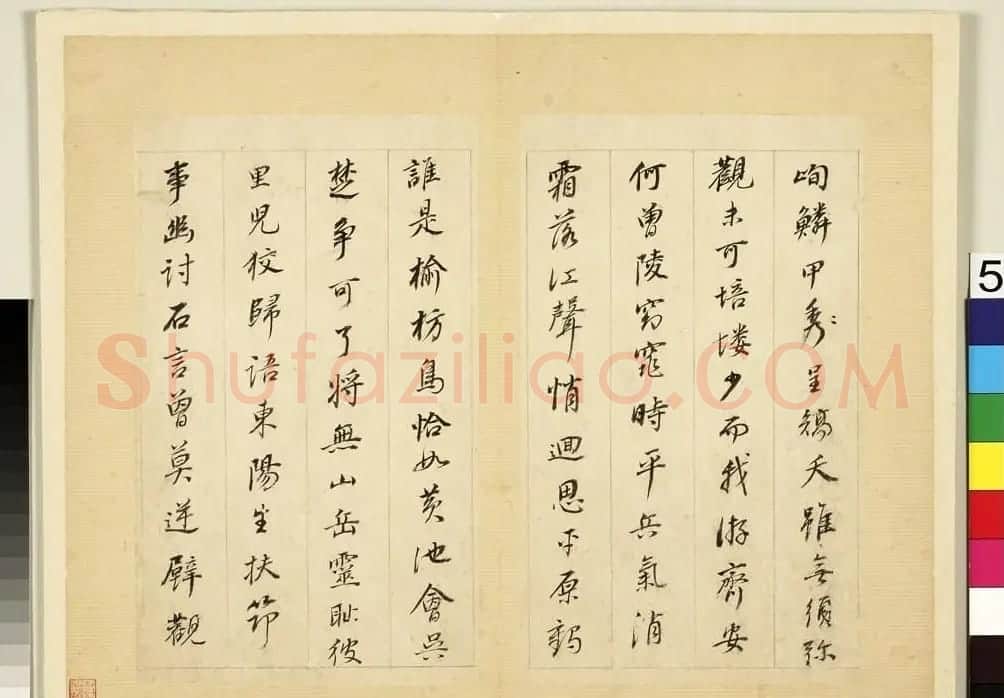 峋鱗甲秀呈矯夭雖無須弥
觀未可培塿少而我游齊安
何曾陵窈窕時平兵氣消
霜落江聲悄迴思平原
誰是榆枋鳥恰如黃池會吳
楚爭可了將無山岳靈恥彼
里兒狡歸語東陽生扶筇
事幽討石言曾莫逆壁觀
Shufaziliao.COM
5